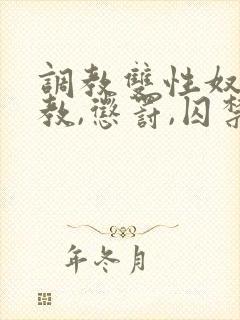 調教雙性奴
教,懲罰,囚禁
年冬月